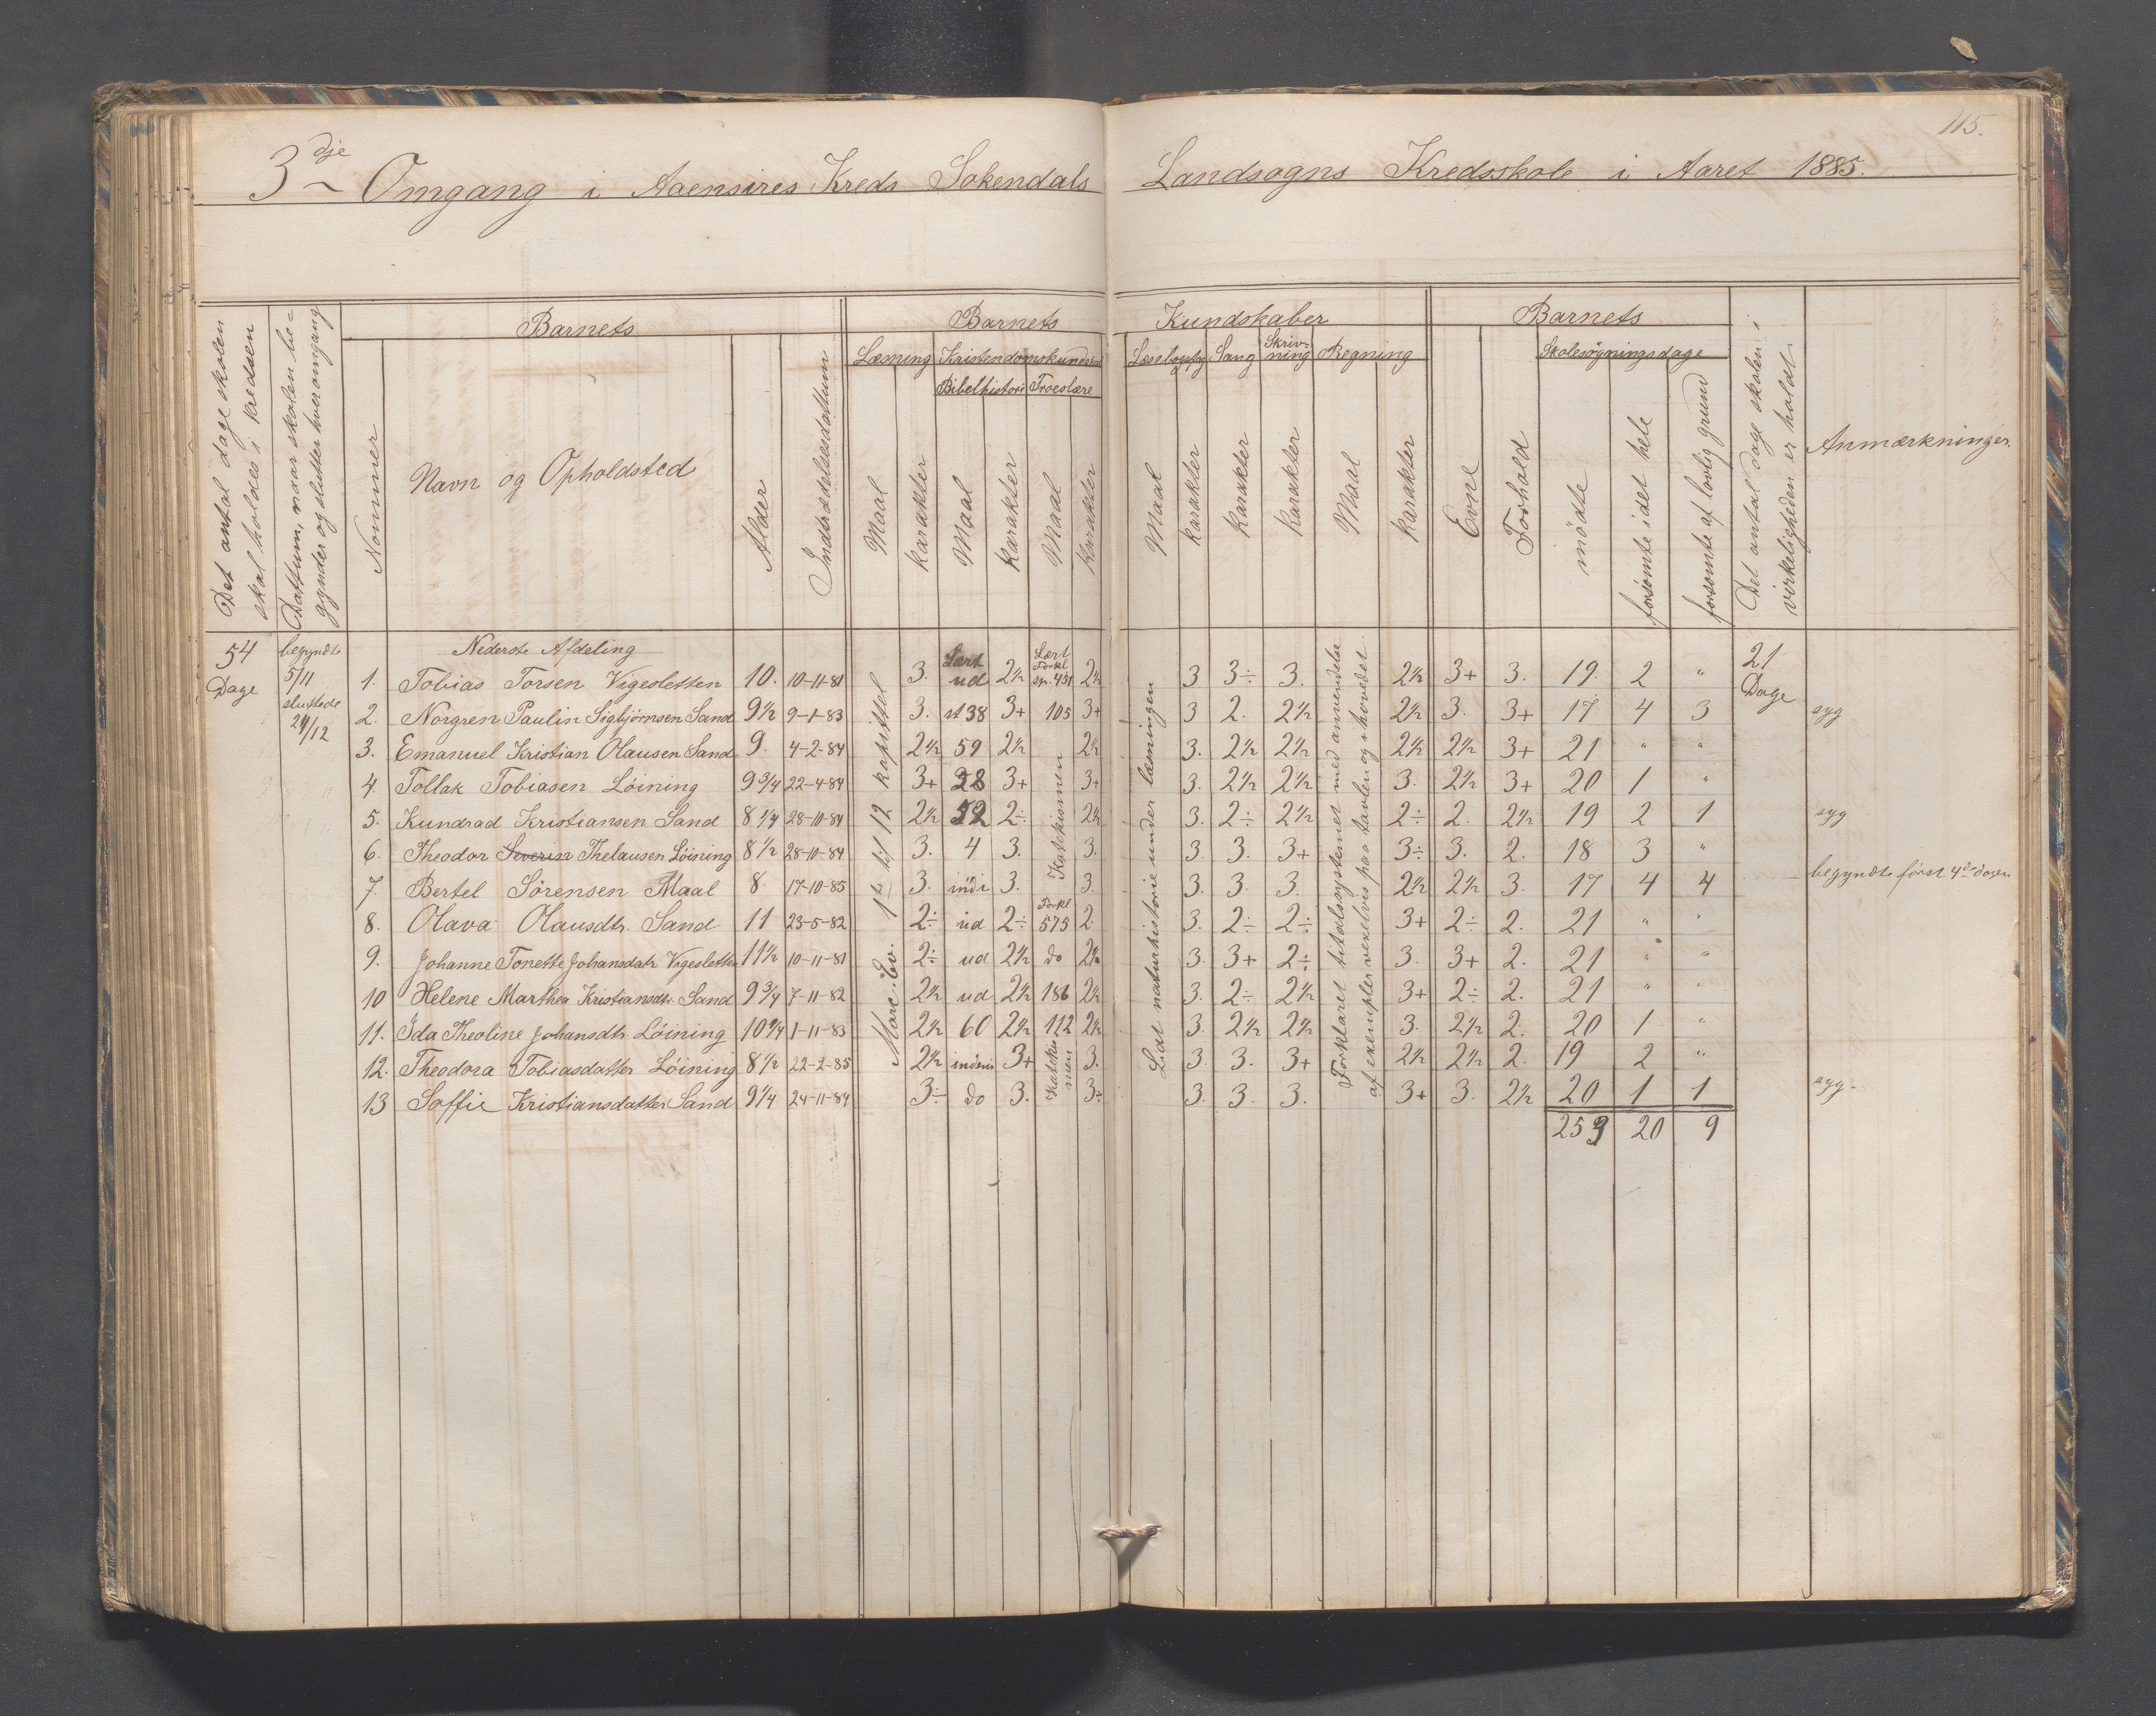 115.
3dje Omgang i Aaensires Kreds Sokendals Landsogns Kredsskole i Aaret 1885.
Det antal dage skolen skal holdes i kredsen
Dattum, naar skolen be=gynder og slutter hver omgang
Barnets
Nommer
Navn og Opholdsted
Alder
Indtrædelsesdattum
Barnets Kundskaber
Læsning
Kristendomskundskab
Bibelhistorie
Troeslære
Læsebogstyk
Sang
Skriv-ning
Regning
Maal
Karakter
Maal
Karakter
Maal
Karakter
Maal
Karakter
Karakter
Karakter
Maal
Karakter
Barnets
Evne
Forhold
Skolesøgningsdage
mødte
forsømte i det hele
forsømte af lovlig grund
Det antal dage skolen i virkeligheden er holdt
Anmærkninger.
54 Dage
begyndte 5/11 sluttede 24/12
Nederste Afdeling
21 Dage
1. Tobias Torsen Vigesletten 10. 10-11-81 3. Lært ud 2½ Lært Forkl sp. 431 2½ 3 3÷ 3. 2½ 3+ 3. 19. 2 "
2. Norgren Paulin Sigbjørnsen Sand 9½ 9-1-83 3. st 38 3+ 105 3+ 3 2. 2½ 2½ 3. 3+ 17 4 3 syg
3. Emanuel Kristian Olausen Sand 9. 4-2-84 2½ 59 2½ 2½ 3. 2½ 2½ 2½ 2½ 3+ 21 " "
4. Tollak Tobiasen Løining 9¾ 22-4-84 3+ 28 3+ 3+ 3. 2½ 2½ 3. 2½ 3+ 20 1 "
5. Kundrad Kristiansen Sand 8¼ 28-10-84 2½ 52 2÷ 2½ 3. 2÷ 2½ 2÷ 2. 2½ 19 2 1 syg
6. Theodor Severin Thelausen Løining 8½ 28-10-84 3. 4 3. 3. 3. 3. 3+ 3÷ 3. 2. 18 3 "
7. Bertel Sørensen Maal 8. 17-10-85 3. indl 3. 3. 3. 3. 3. 2½ 2½ 3. 17 4 4 begyndte først 4de dagen
8. Olava Olausdtr. Sand 11 23-5-82 2÷ ud 2÷ Forkl 575 2. 3. 2÷ 2÷ 3+ 2÷ 2. 21 " "
9. Johanne Tonette Johansdatr Vigesletten 11½ 10-11-81 2÷ ud 2½ do 2½ 3. 3+ 2÷ 3. 3+ 2. 21 " "
10 Helene Marthea Kristiansdtr. Sand 9¾ 7-11-82 2½ ud 2½ 186 2½ 3. 2÷ 2½ 3+ 2÷ 2. 21 " "
11. Ida Theoline Johansdtr. Løining 10¾ 1-11-83 2½ 60 2½ 112 2½ 3. 2½ 2½ 3. 2½ 2. 20 1 "
12. Theodora Tobiasdatter Løining 8½ 22-2-85 2½ 3+ 3. 3. 3. 3+ 2½ 2½ 2. 19 2 "
13 Soffie Kristiansdatter Sand 9¼ 24-11-84 3÷ do 3. 3÷ 3. 3. 3. 3+ 3. 2½ 20 1 1 syg
253 20 9
Marc. Ev. 1ste til 12 kapittel
Katekismen
Katekismen
Lidt naturhistorie under læsningen
Forklaret titalssystemet med anvendelse af exempler vexelvis paa tavlen og i hovedet.